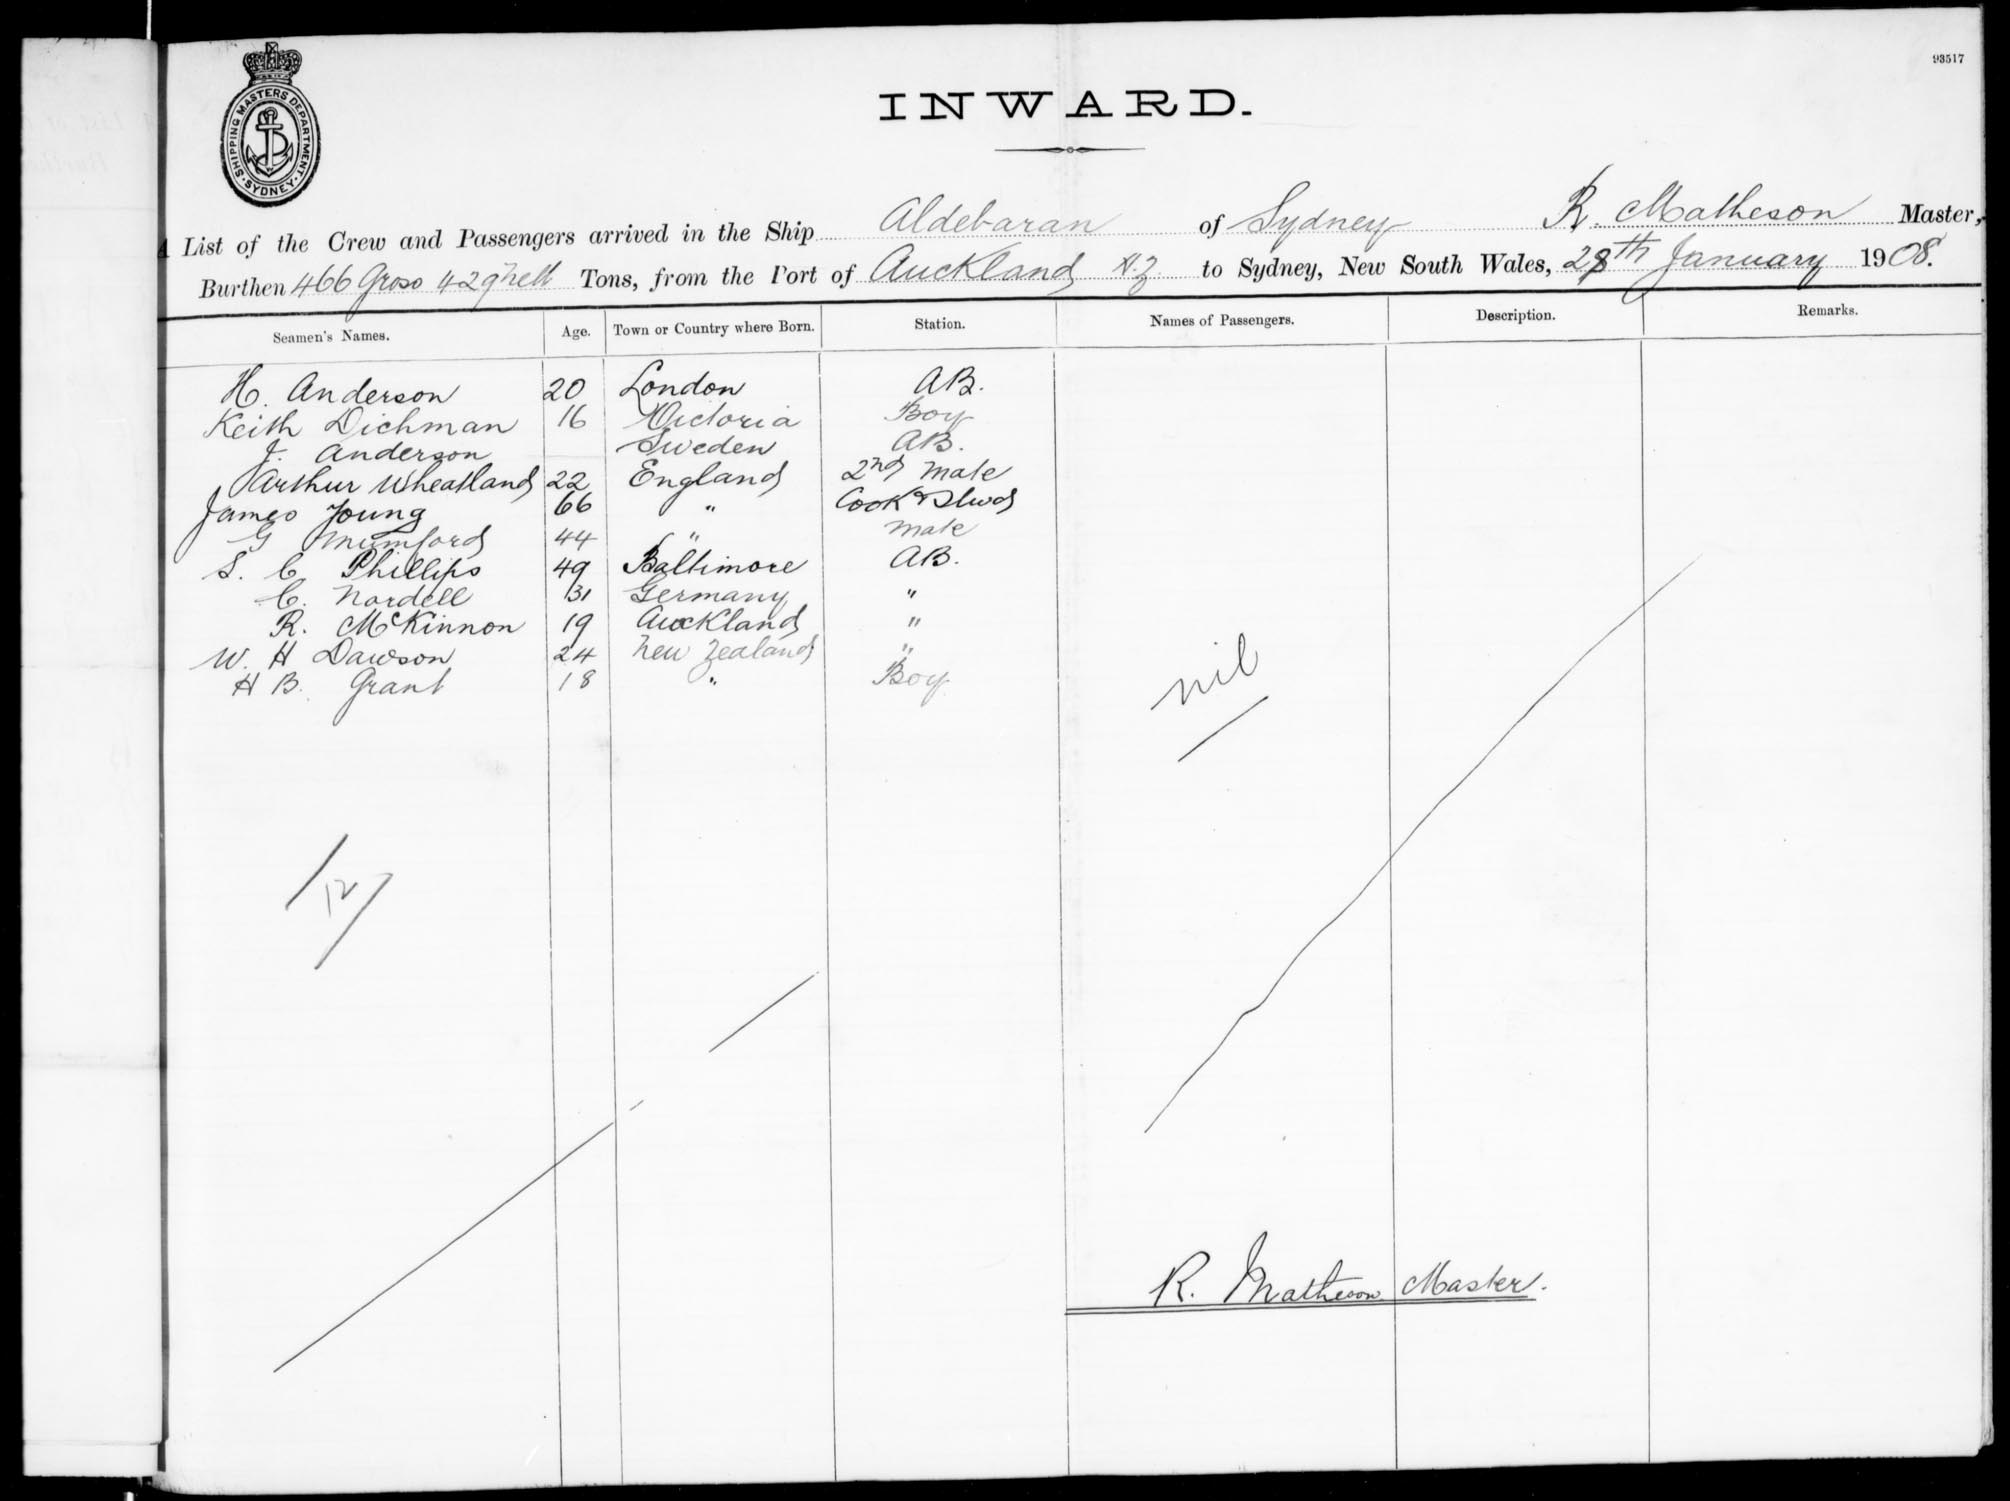 93517
SHIPPING MASTERS DEPARTMENT
SYDNEY
INWARD.
A List of the Crew and Passengers arrived in the Ship Aldebaran of Sydney R. Matheson Master,
Burthen 466 Gross 429 nett Tons, from the Port of Auckland N.Z. to Sydney, New South Wales, 28th January 1908.
Seamen's Names. Age. Town or Country where Born. Station. Names of Passengers. Description. Remarks.
H. Anderson 20 London AB.
Keith Dichman 16 Victoria Boy
J. Anderson Sweden AB.
Arthur Wheatland 22 England 2nd Mate
James Young 66 " Cook & Stwd
G Mumford 44 " Mate
S. C Phillips 49 Baltimore AB.
C. Nordell 31 Germany "
R. McKinnon 19 Auckland "
W. H Dawson 24 New Zealand "
H B. Grant 18 " Boy
nil
12
R. Matheson Master.